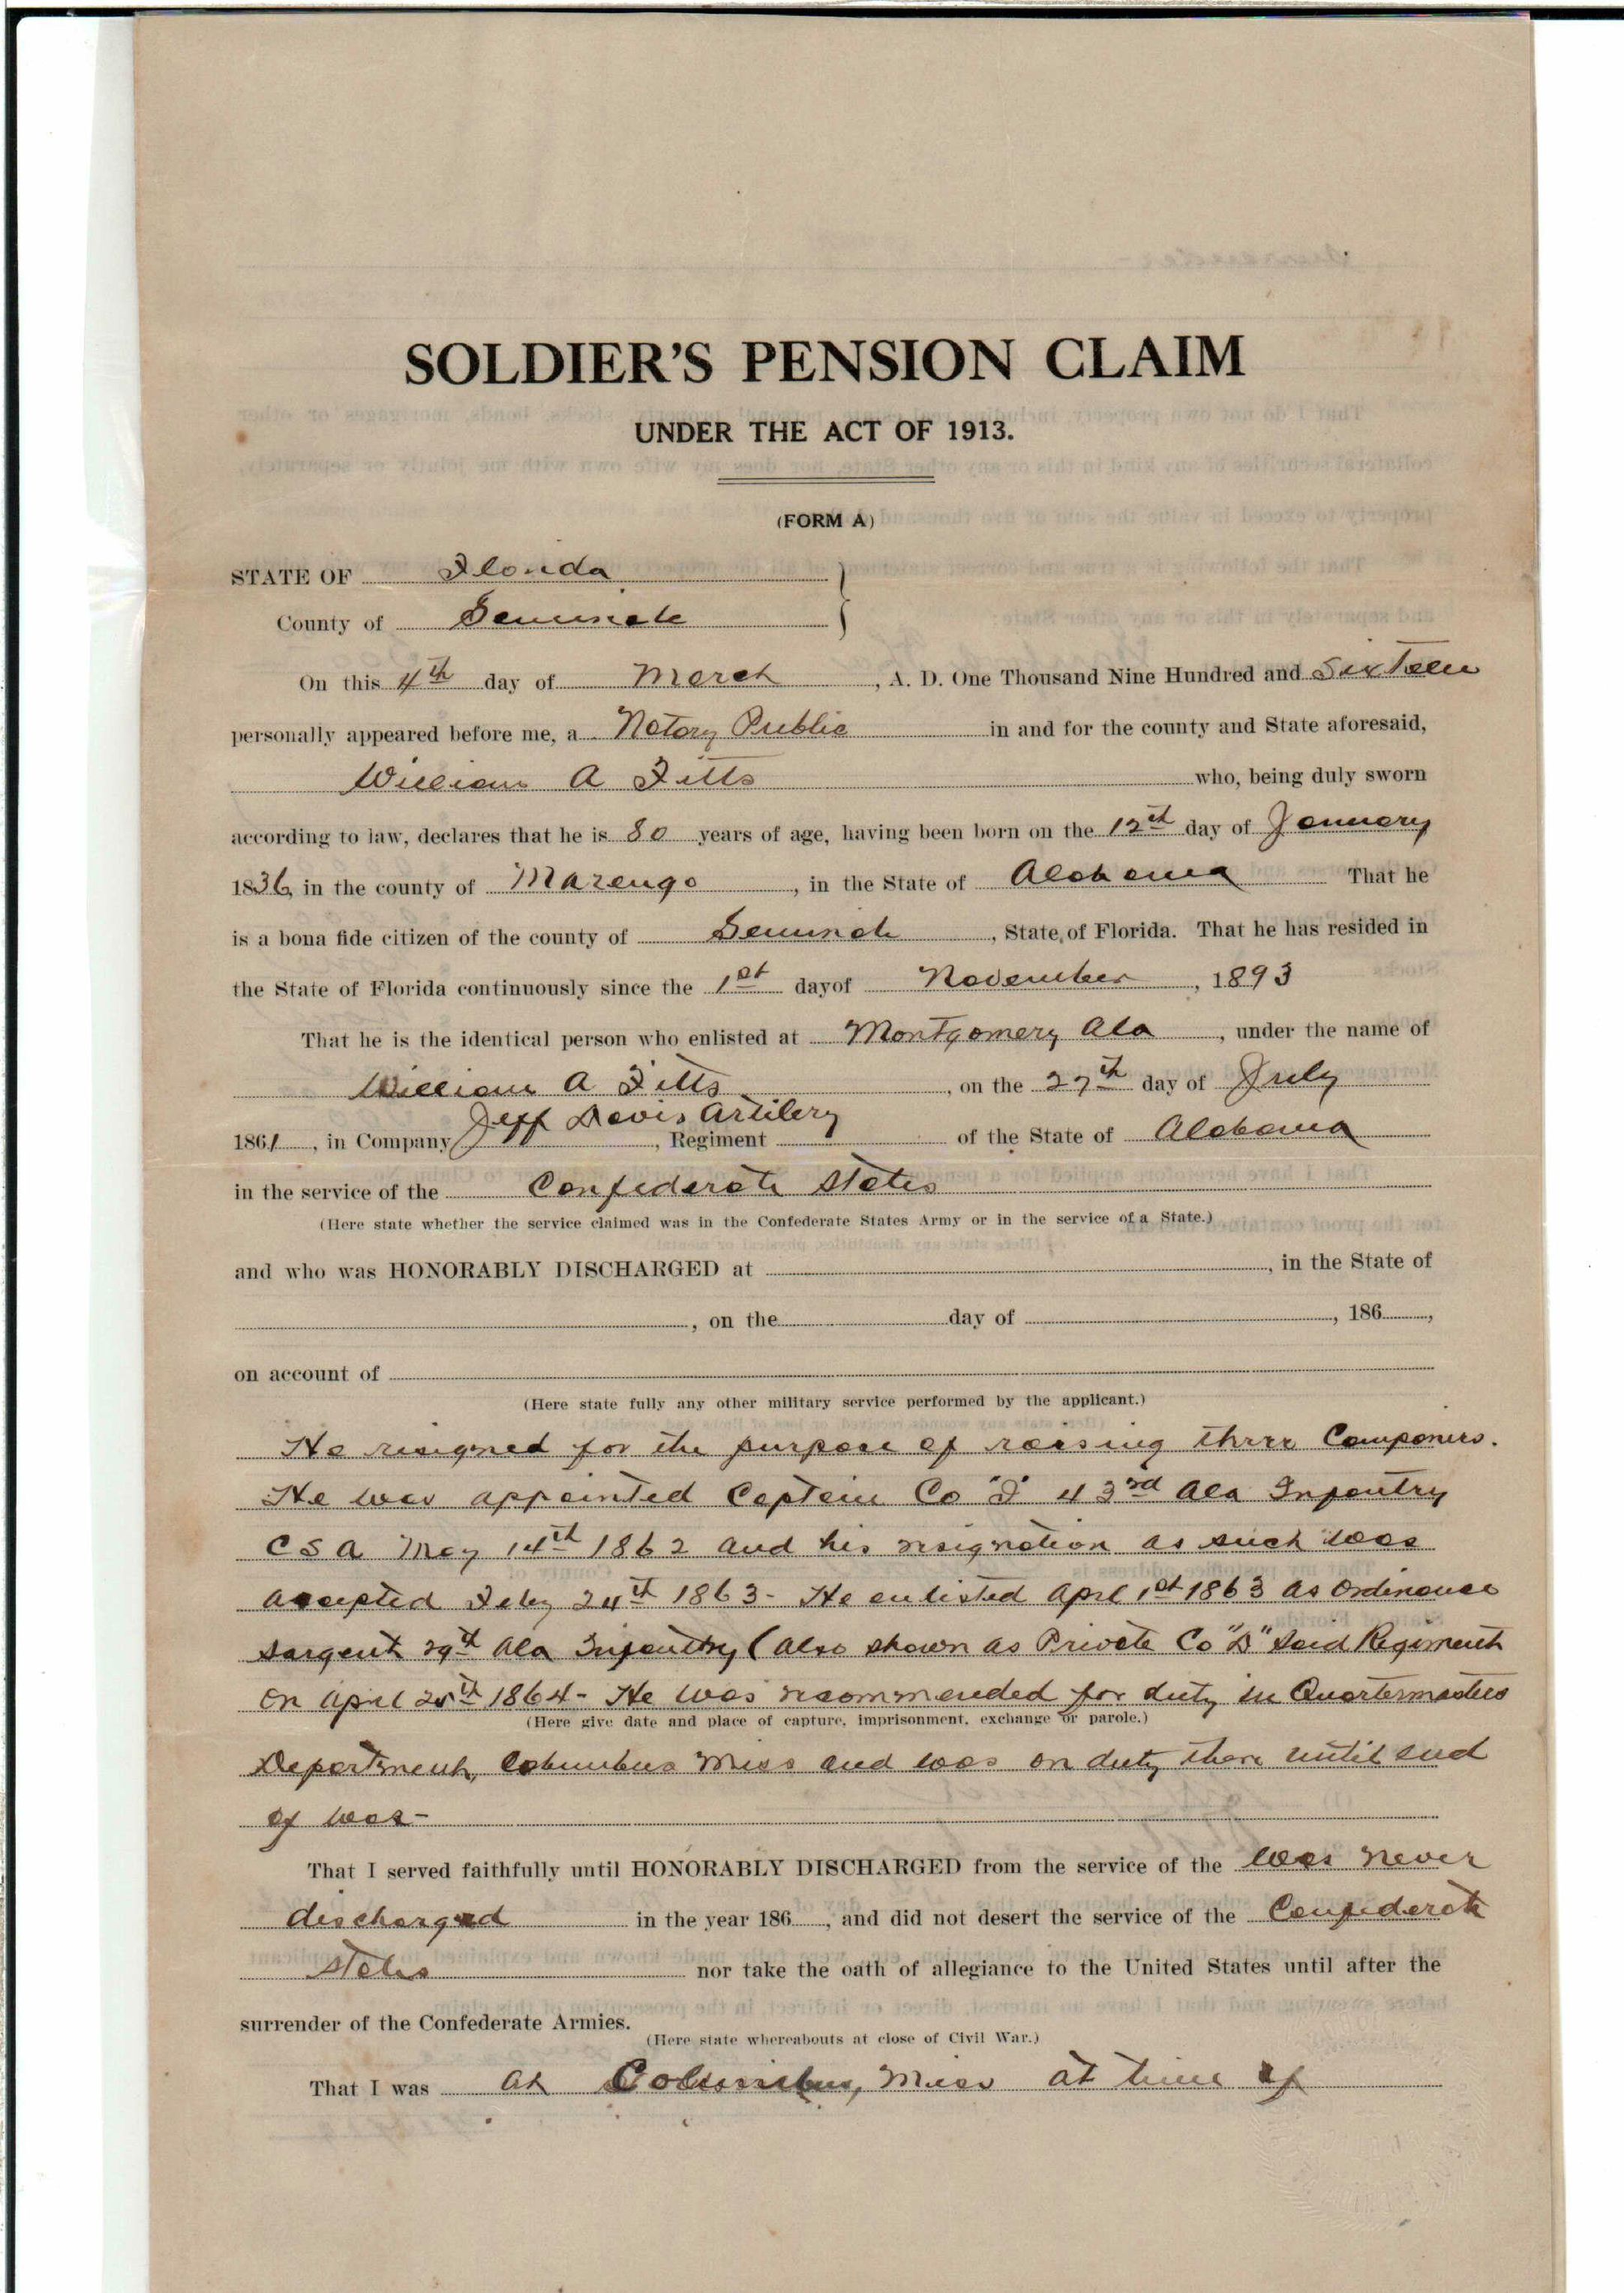 SOLDIER'S PENSION CLAIM
UNDER THE ACT OF 1913.
(FORM A)
STATE OF Florida
County of Seminole
On this 4th day of March, A. D. One Thousand Nine Hundred and Sixteen
personally appeared before me, a Notary Public in and for the county and State aforesaid,
William A Fitts who, being duly sworn
according to law, declares that he is 80 years of age, having been born on the 12th day of January
1836, in the county of Marengo, in the State of Alabama That he
is a bona fide citizen of the county of Seminole, State of Florida. That he has resided in
the State of Florida continuously since the 1st dayof November, 1893
That he is the identical person who enlisted at Montgomery Ala, under the name of
William A Fitts, on the 27th day of July
1861, in Company Jeff Davis Artilery, Regiment of the State of Alabama
in the service of the Confederate States
(Here state whether the service claimed was in the Confederate States Army or in the service of a State.)
and who was HONORABLY DISCHARGED at , in the State of
, on the day of , 186 ,
on account of
(Here state fully any other military service performed by the applicant.)
He resigned for the purpose of raising three Companies.
He was appointed Captain Co "I" 43rd Ala Infantry
CSA May 14th 1862 and his resignation as such was
accepted Feby 24th 1863- He enlisted April 1st 1863 as Ordinance
Sargent 29th Ala Infantry (also shown as Private Co "D" Said Regiment
On April 25th 1864- He was recommended for duty in Quartermasters
(Here give date and place of capture, imprisonment, exchange or parole.)
Department, Columbus Miss and was on duty there until end
of war-
That I served faithfully until HONORABLY DISCHARGED from the service of the was never
discharged in the year 186 , and did not desert the service of the Confederate
States nor take the oath of allegiance to the United States until after the
surrender of the Confederate Armies.
(Here state whereabouts at close of Civil War.)
That I was at Columbus, Miss at time of